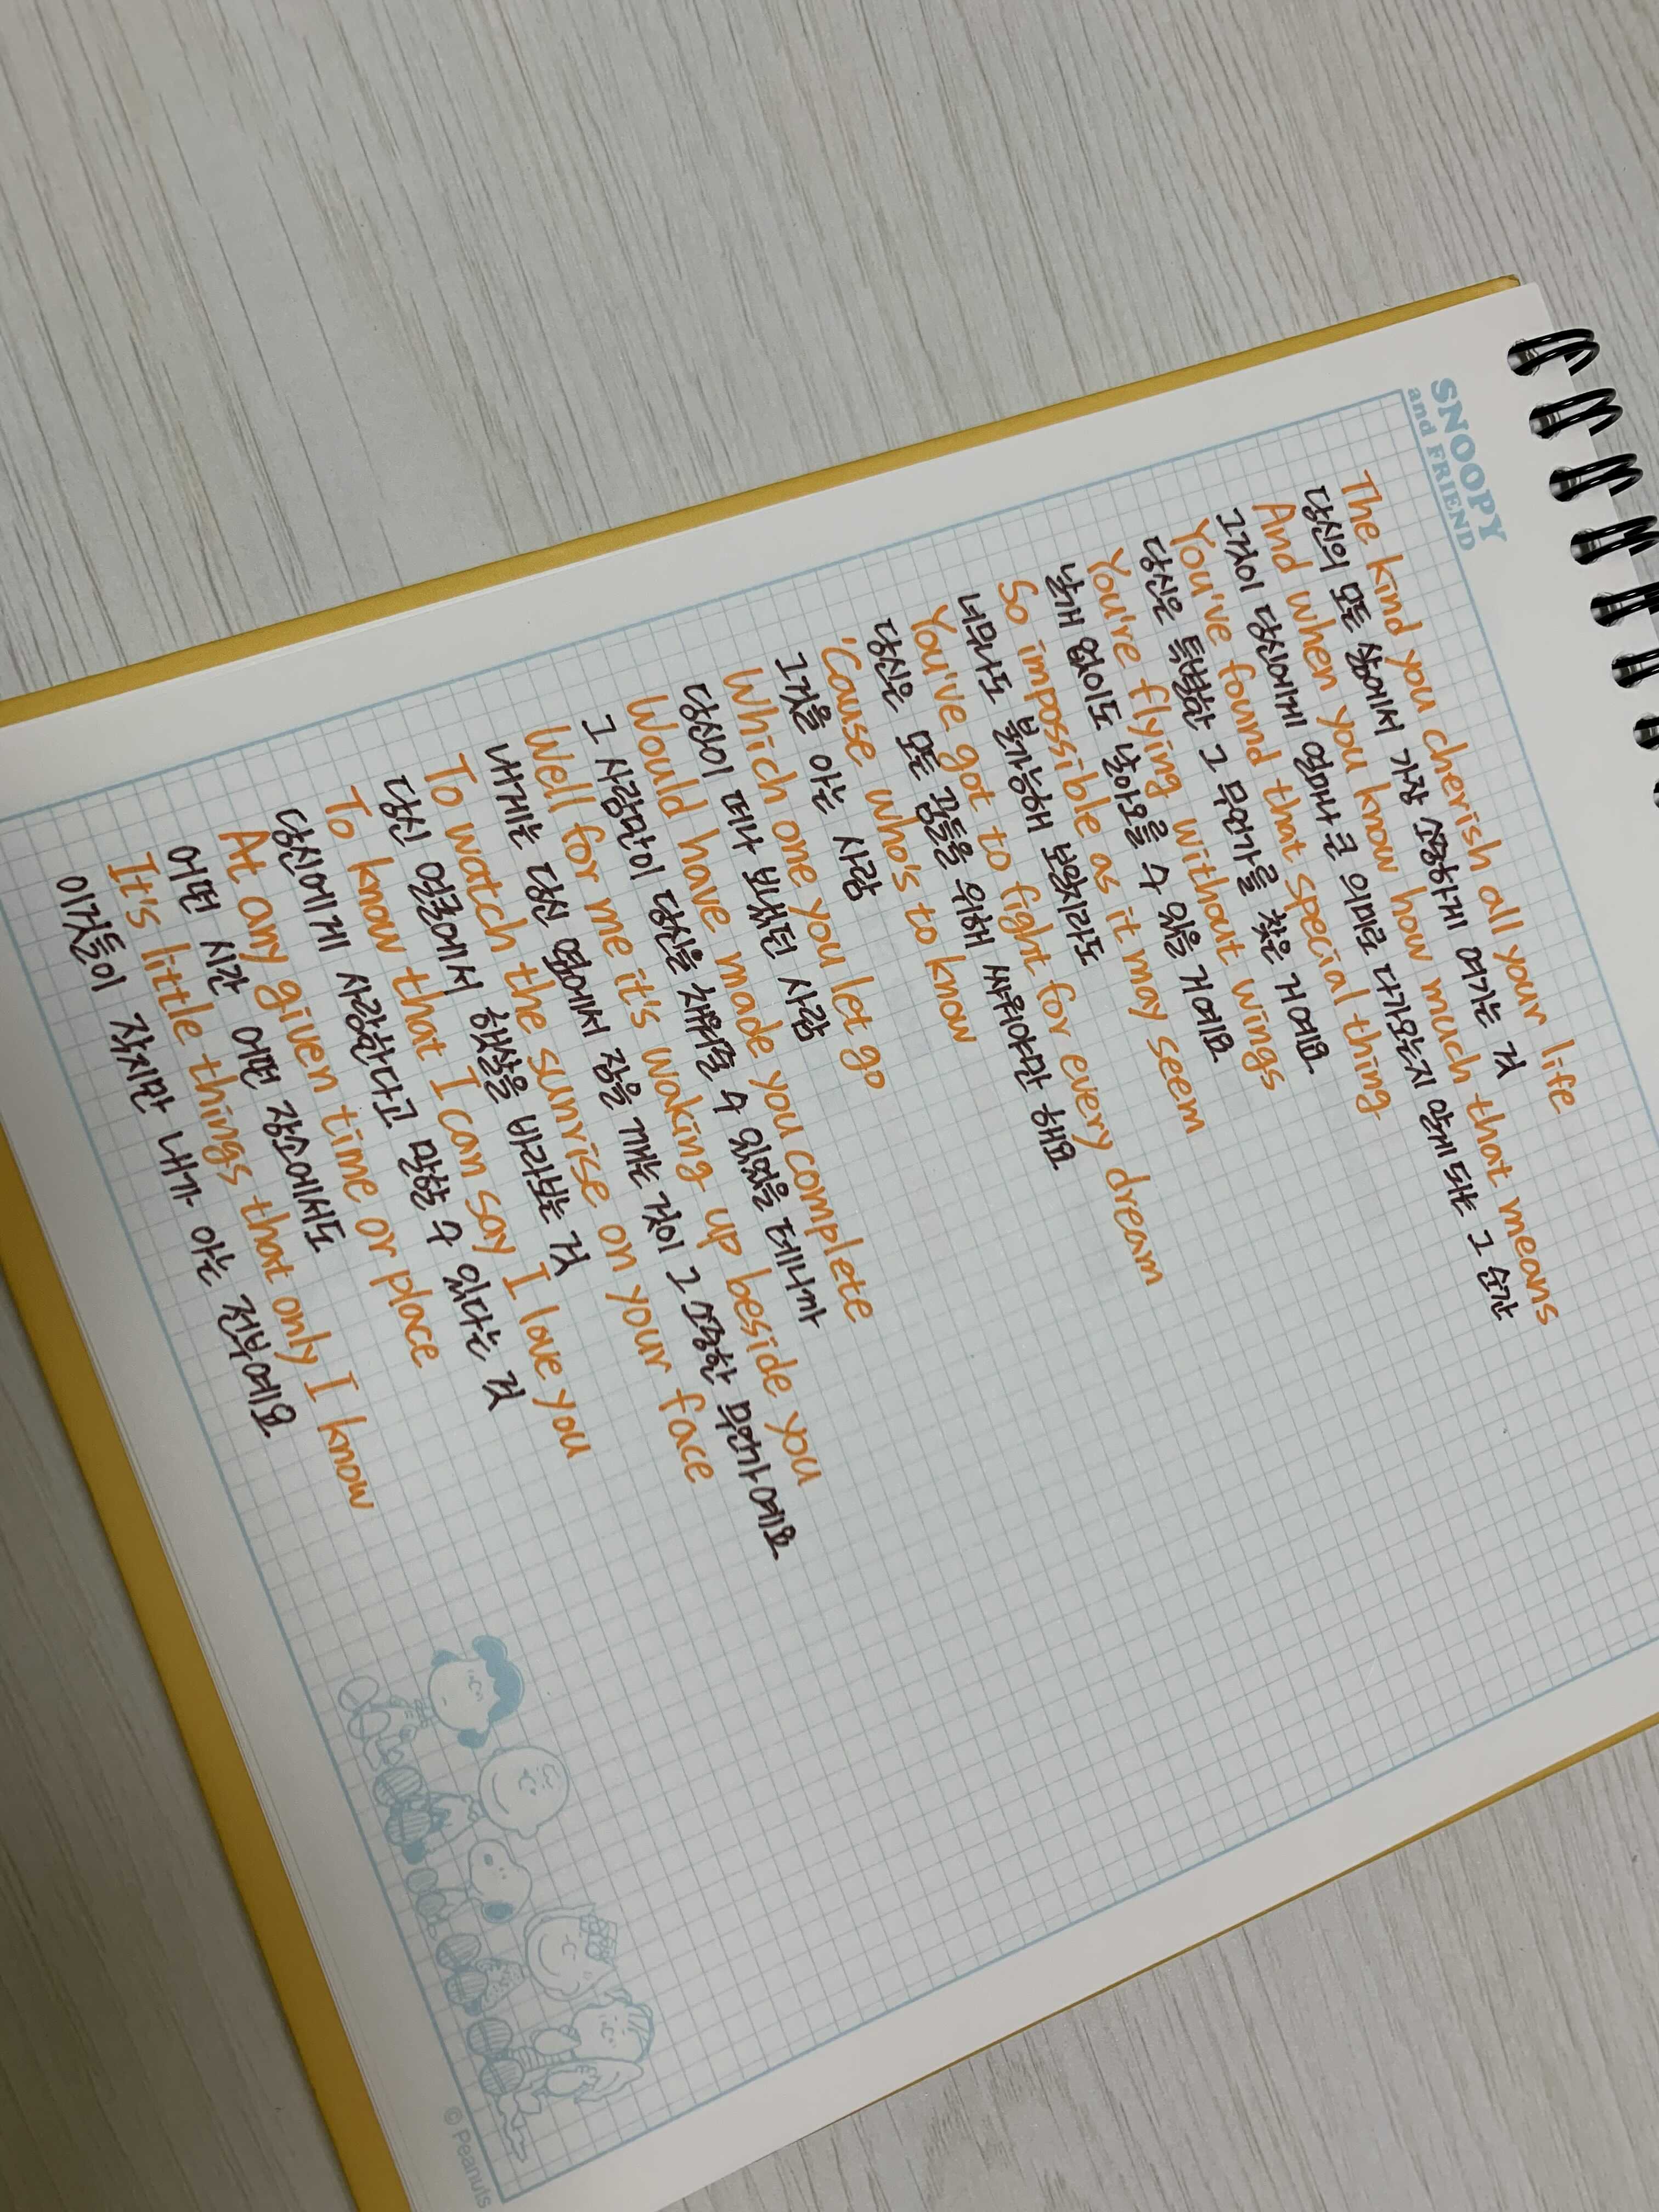 SNOOPY
and FRIEND
The kind you cherish all your life
당신의 모든 삶에서 가장 소중하게 여기는 것
And when you know how much that means
그것이 당신에게 얼마나 큰 의미로 다가오는지 알게 되는 그 순간
You've found that special thing
당신은 특별한 그 무언가를 찾은 거예요
You're flying without wings
날개 없이도 날아오를 수 있을 거예요
So impossible as it may seem
너무나도 불가능해 보일지라도
You've got to fight for every dream
당신은 모든 꿈들을 위해 싸워야만 해요
'Cause who's to know
그것을 아는 사람
Which one you let go
당신이 떠나 보냈던 사람
Would have made you complete
그 사람만이 당신을 채워줄 수 있었을 테니까
Well for me it's waking up beside you
내게는 당신 옆에서 잠을 깨는 것이 그 소중한 무언가예요
To watch the sunrise on your face
당신 얼굴에서 햇살을 바라보는 것
To know that I can say I love you
당신에게 사랑한다고 말할 수 있다는 것
At any given time or place
어떤 시간 어떤 장소에서도
It's little things that only I know
이것들이 작지만 내가 아는 전부예요
© Peanuts